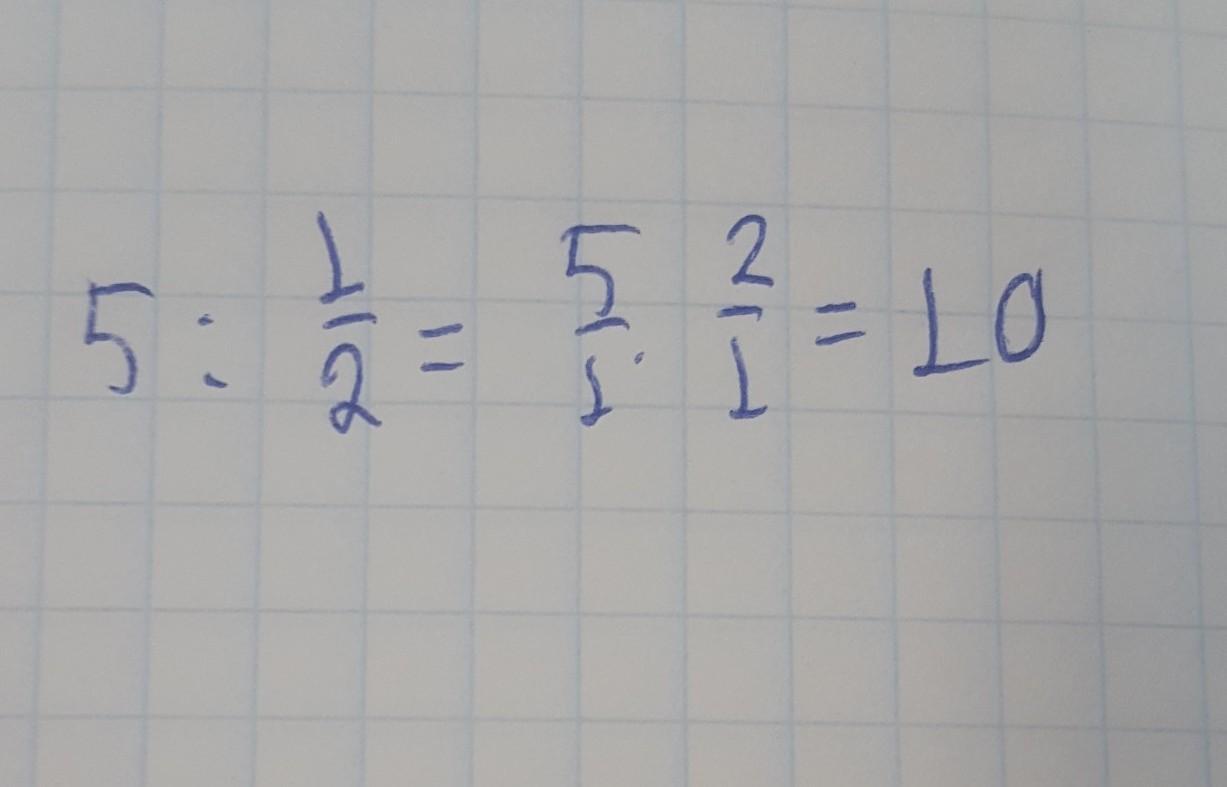 5 : 1/2 = 5/1 · 2/1 = 10